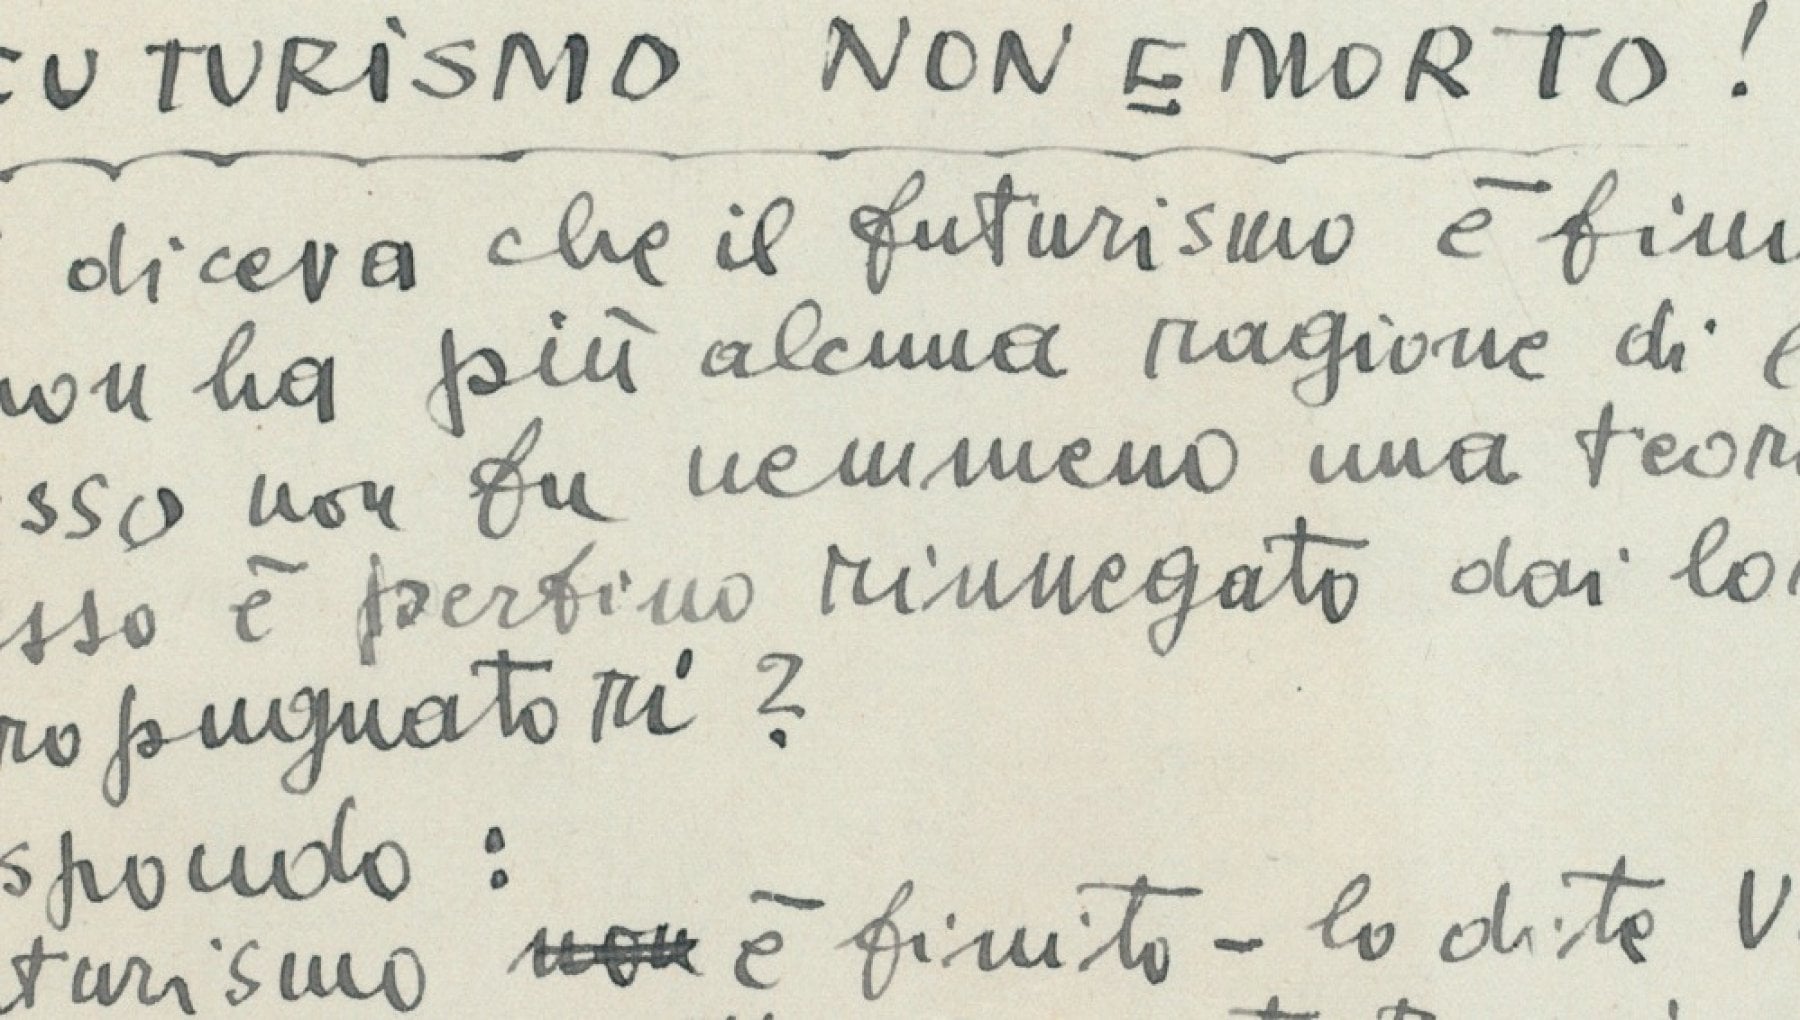 FUTURISMO NON E MORTO!
diceva che il futurismo è fini
non ha più alcuna ragione di e
sso non fu nemmeno una teori
sso è perfino rinnegato dai lor
ropugnatori?
spondo:
turismo non è finito - lo dite V